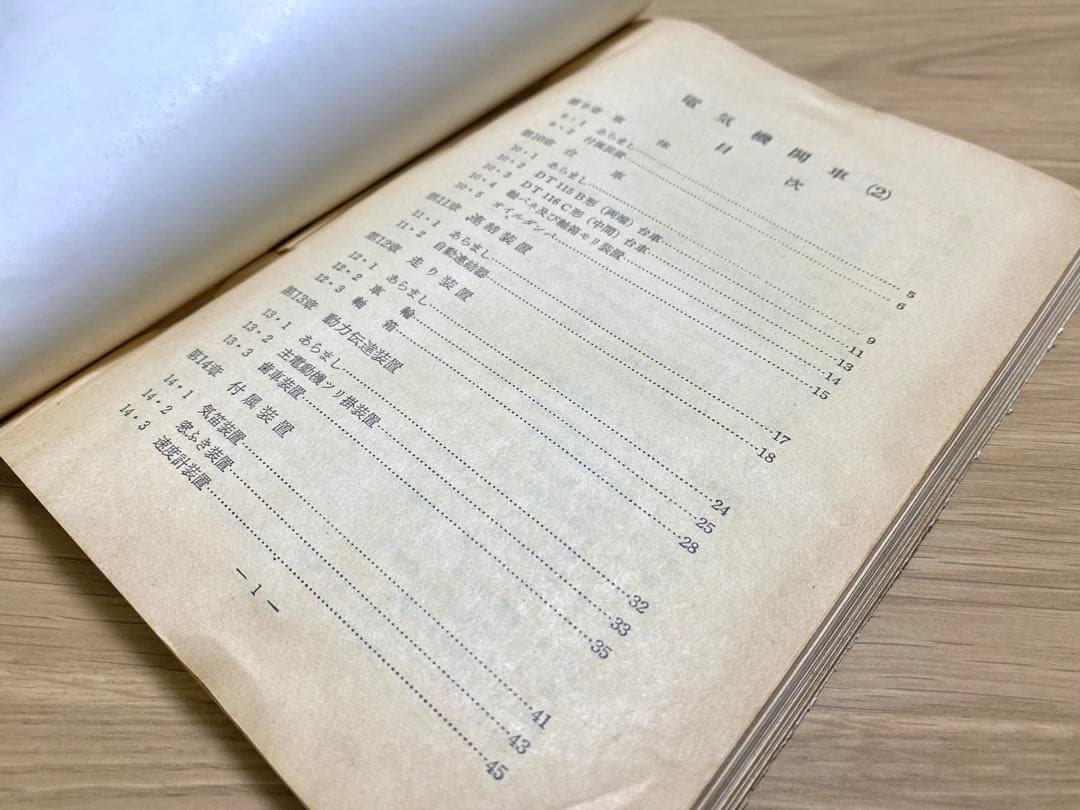 電気機関車(2)
目次
第9章 車体
9・1 あらまし……5
9・2 付属装置……6
第10章 台車
10・1 あらまし……9
10・2 DT 115 B形(両端)台車……11
10・3 DT 116 C形(中間)台車……13
10・4 軸バネ及び軸箱モリ装置……14
10・5 オイルダンパ……15
第11章 連結装置
11・1 あらまし……17
11・2 自動連結器……18
第12章 走り装置
12・1 あらまし……24
12・2 車輪……25
12・3 軸箱……28
第13章 動力伝達装置
13・1 あらまし……32
13・2 主電動機ツリ掛装置……33
13・3 歯車装置……35
第14章 付属装置
14・1 気笛装置……41
14・2 窓ふき装置……43
14・3 速度計装置……45
— 1 —